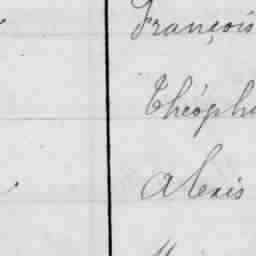 François
Théophi
Alexis